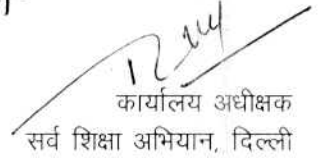 कार्यालय अधीक्षक
सर्व शिक्षा अभियान, दिल्ली